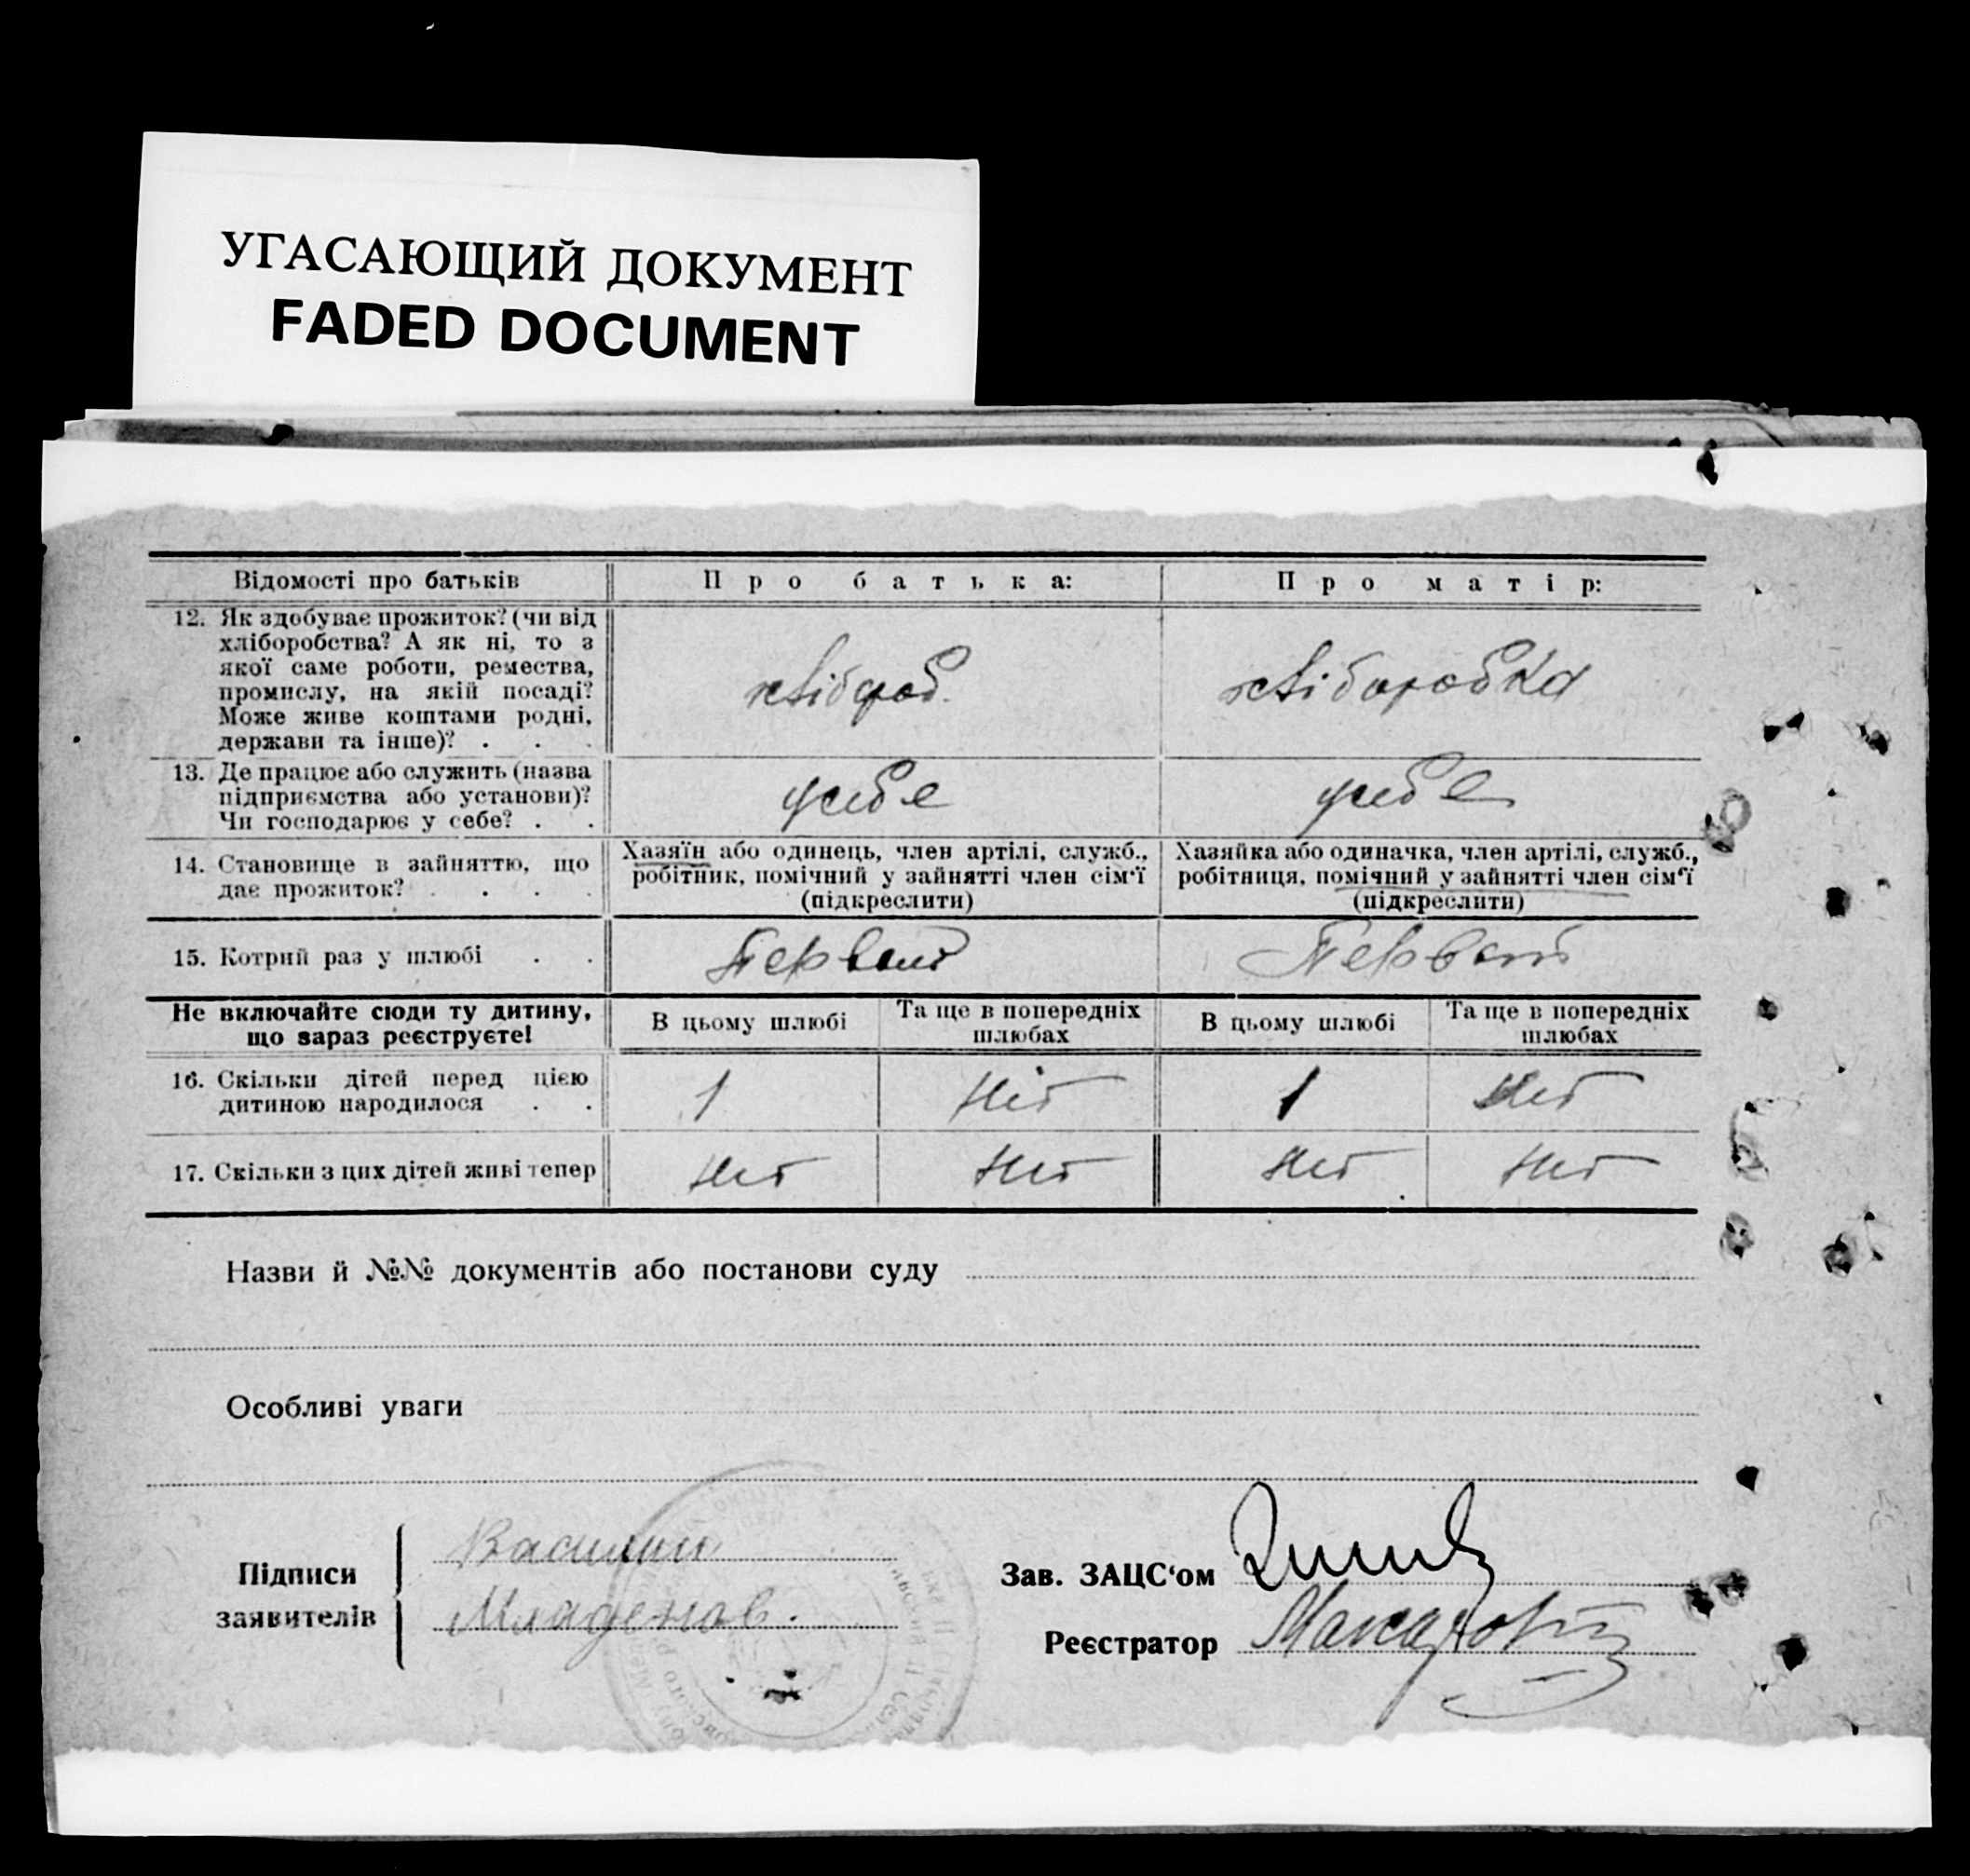 УГАСАЮЩИЙ ДОКУМЕНТ
FADED DOCUMENT
Відомості про батьків
Про батька:
Про матір:
12. Як здобуває прожиток? (чи від
хліборобства? А як ні, то з
якої саме роботи, ремества,
промислу, на якій посаді?
Може живе коштами родні,
держави та інше)? . . .
хлібороб.
хліборобка
13. Де працює або служить (назва
підприємства або установи)?
Чи господарює у себе? . .
у себе
у себе
14. Становище в зайняттю, що
дає прожиток? . . . .
Хазяїн або одинець, член артілі, служб.,
робітник, помічний у зайнятті член сім'ї
(підкреслити)
Хазяйка або одиначка, член артілі, служб.,
робітниця, помічний у зайнятті член сім'ї
(підкреслити)
15. Котрий раз у шлюбі . .
Первый
Первый
Не включайте сюди ту дитину,
що зараз реєструєте!
В цьому шлюбі
Та ще в попередніх
шлюбах
В цьому шлюбі
Та ще в попередніх
шлюбах
16. Скільки дітей перед цією
дитиною народилося . .
1
Нет
1
Нет
17. Скільки з цих дітей живі тепер
Нет
Нет
Нет
Нет
Назви й №№ документів або постанови суду
Особливі уваги
Підписи
заявителів
Василий
Младенов.
Зав. ЗАЦС'ом
Реєстратор